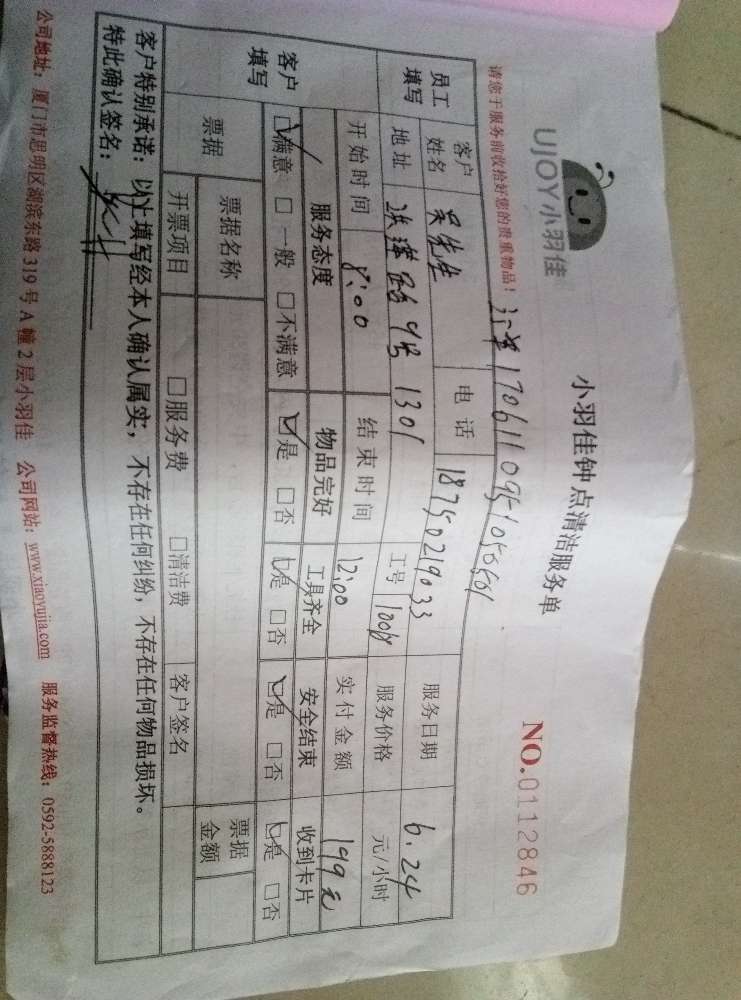 UJOY小羽佳
小羽佳钟点清洁服务单
NO.0112846
请您于服务前收拾好您的贵重物品!
员工填写 客户姓名 吴先生 电话 18750219033 服务日期 6.24
地址 9号1301 工号 服务价格 元/小时
开始时间 8:00 结束时间 12:00 实付金额 199元
客户填写 服务态度 物品完好 工具齐全 安全结束 收到卡片
☑满意 □一般 □不满意 ☑是 □否 ☑是 □否 ☑是 □否 ☑是 □否
票据 票据名称 客户签名 票据金额
开票项目 □服务费 □清洁费
客户特别承诺：以上填写经本人确认属实，不存在任何纠纷，不存在任何物品损坏。
特此确认签名：
公司地址：厦门市思明区湖滨东路319号A幢2层小羽佳 公司网站：www.xiaoyujia.com 服务监督热线：0592-5888123